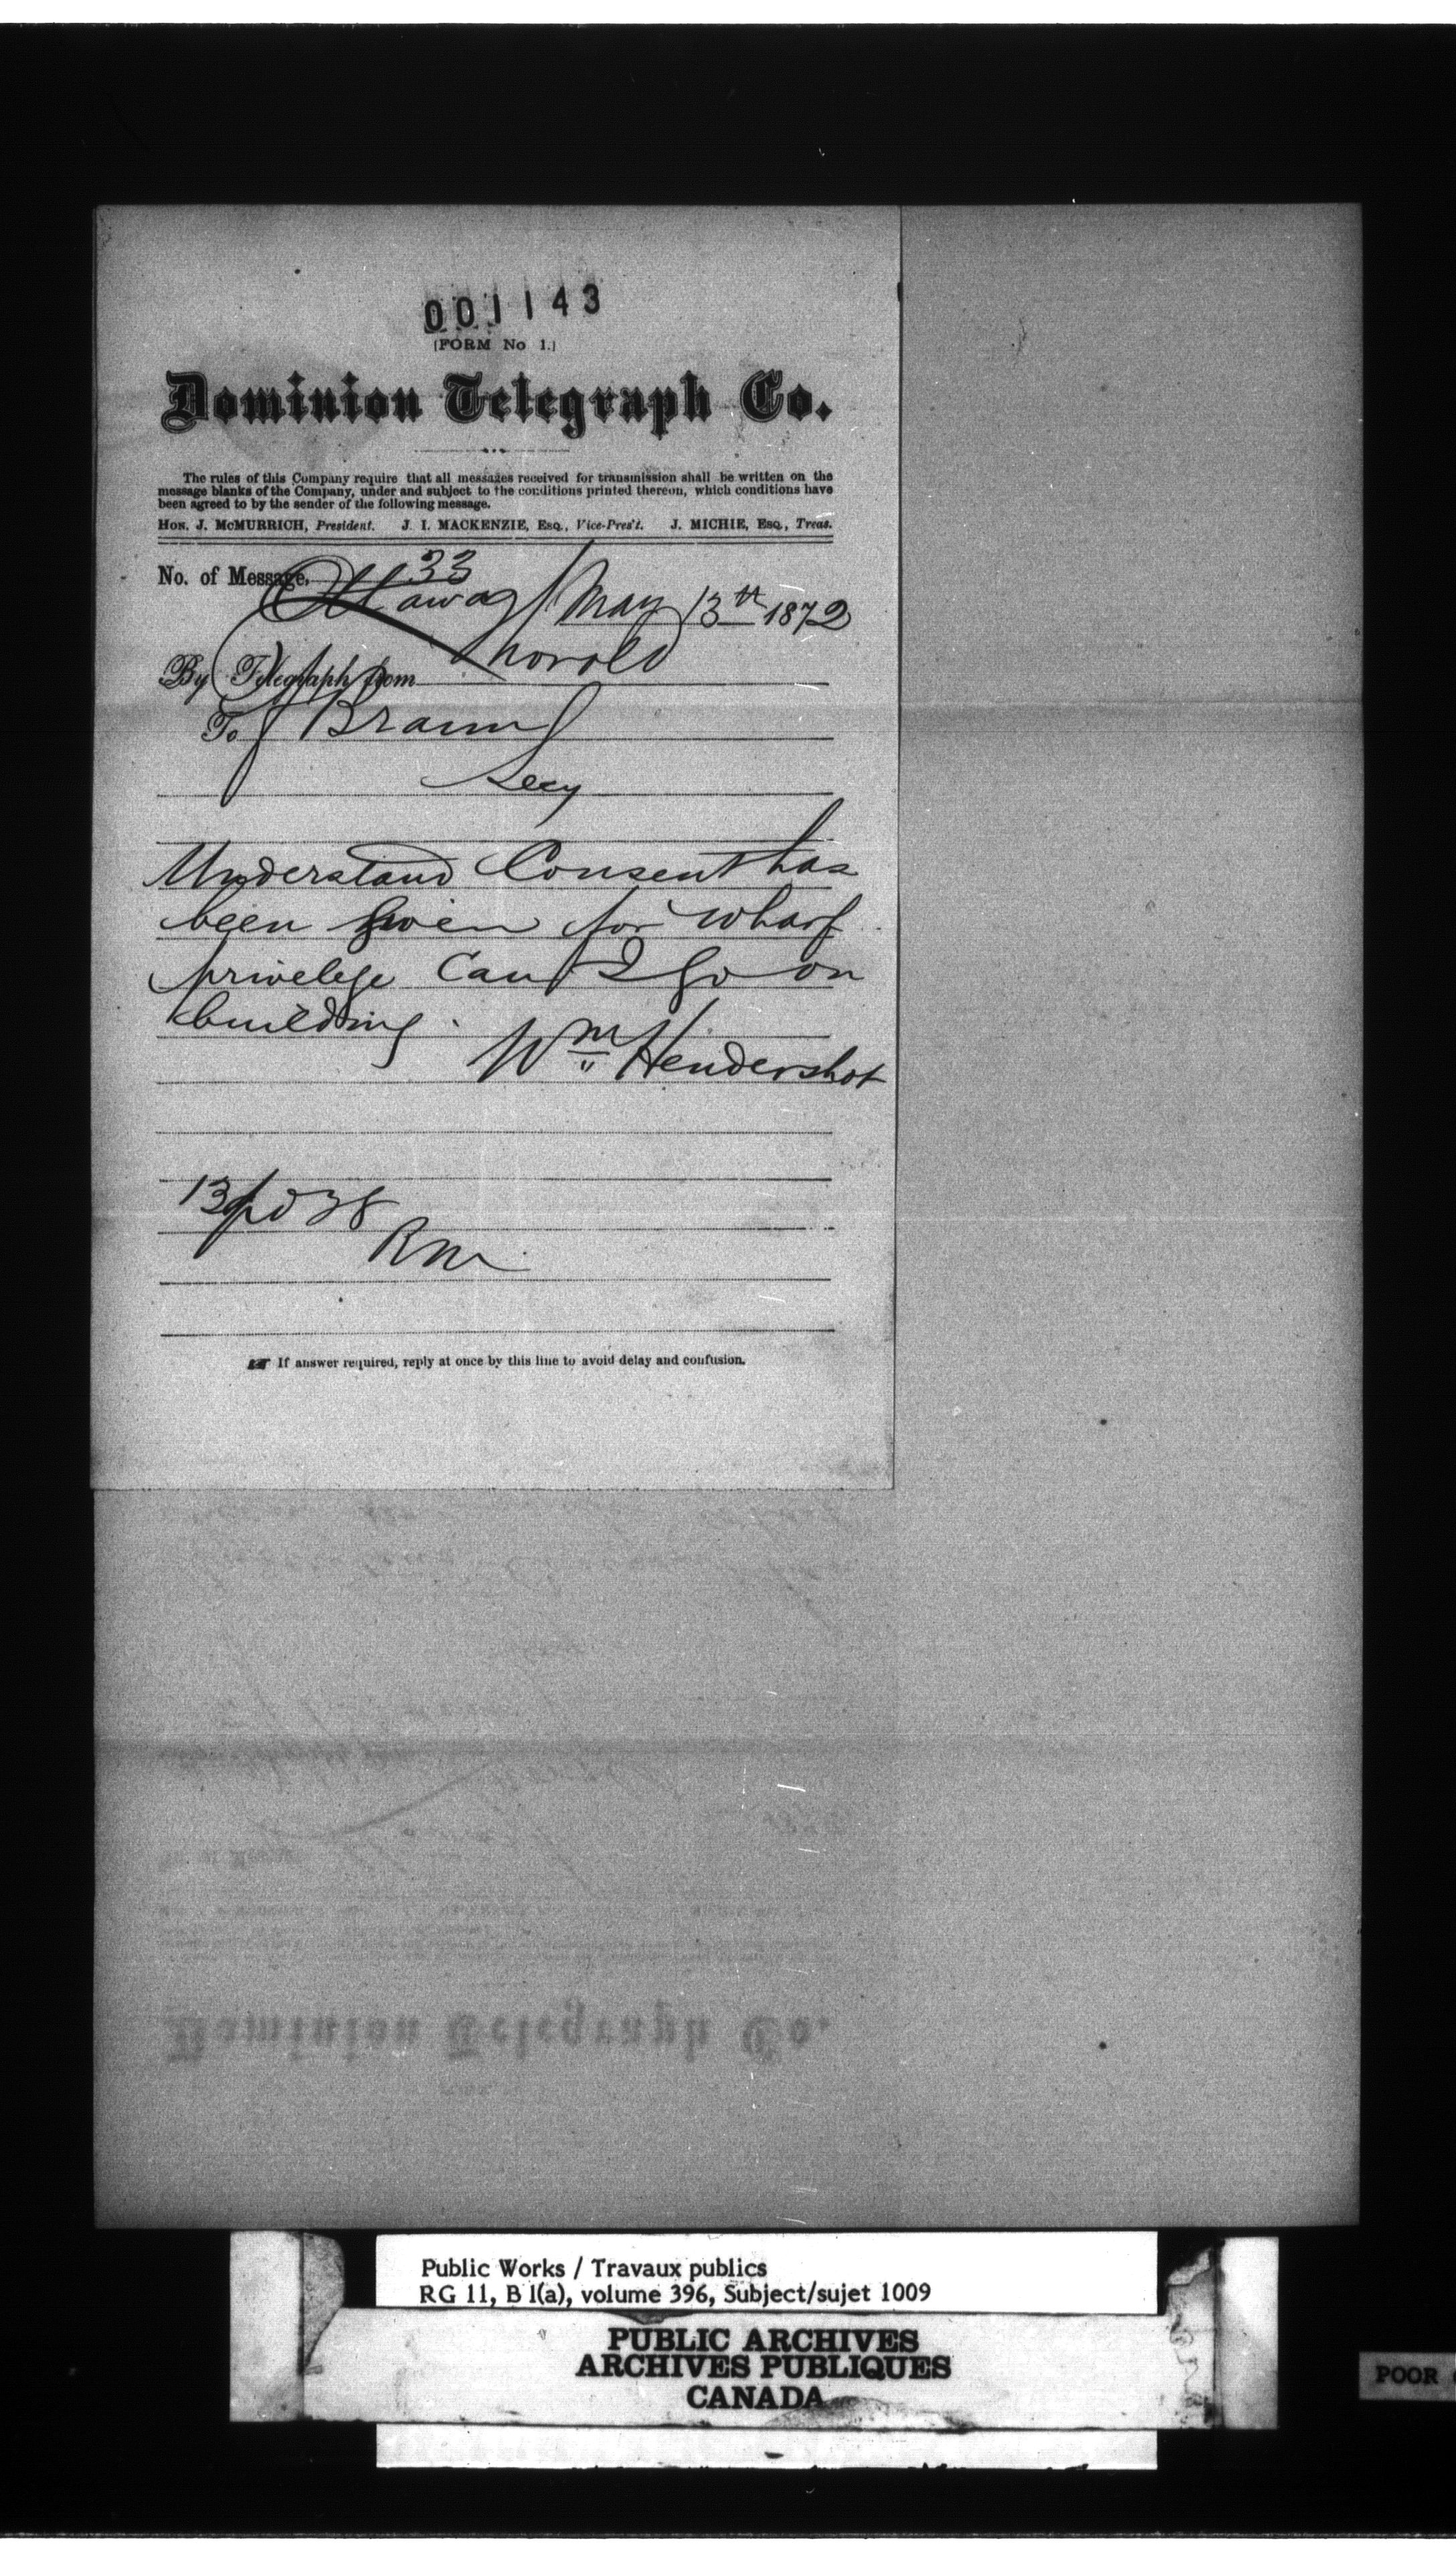 001143
(FORM No 1.)
Dominion Telegraph Co.
The rules of this Company require that all messages received for transmission shall be written on the
message blanks of the Company, under and subject to the conditions printed thereon, which conditions have
been agreed to by the sender of the following message.
HON. J. McMURRICH, President. J. I. MACKENZIE, Esq., Vice-Pres't. J. MICHIE, Esq., Treas.
No. of Message, 33
Ottawa May 13th 1872
By Telegraph from Thorold
To F Braun
Secy
Understand Consent has
been given for wharf
privelege Can I go on
building.
Wm Hendershot
13 pd 38
Rm
If answer required, reply at once by this line to avoid delay and confusion.
Dominion Telegraph Co.
Public Works / Travaux publics
RG 11, B 1(a), volume 396, Subject/sujet 1009
PUBLIC ARCHIVES
ARCHIVES PUBLIQUES
CANADA
POOR